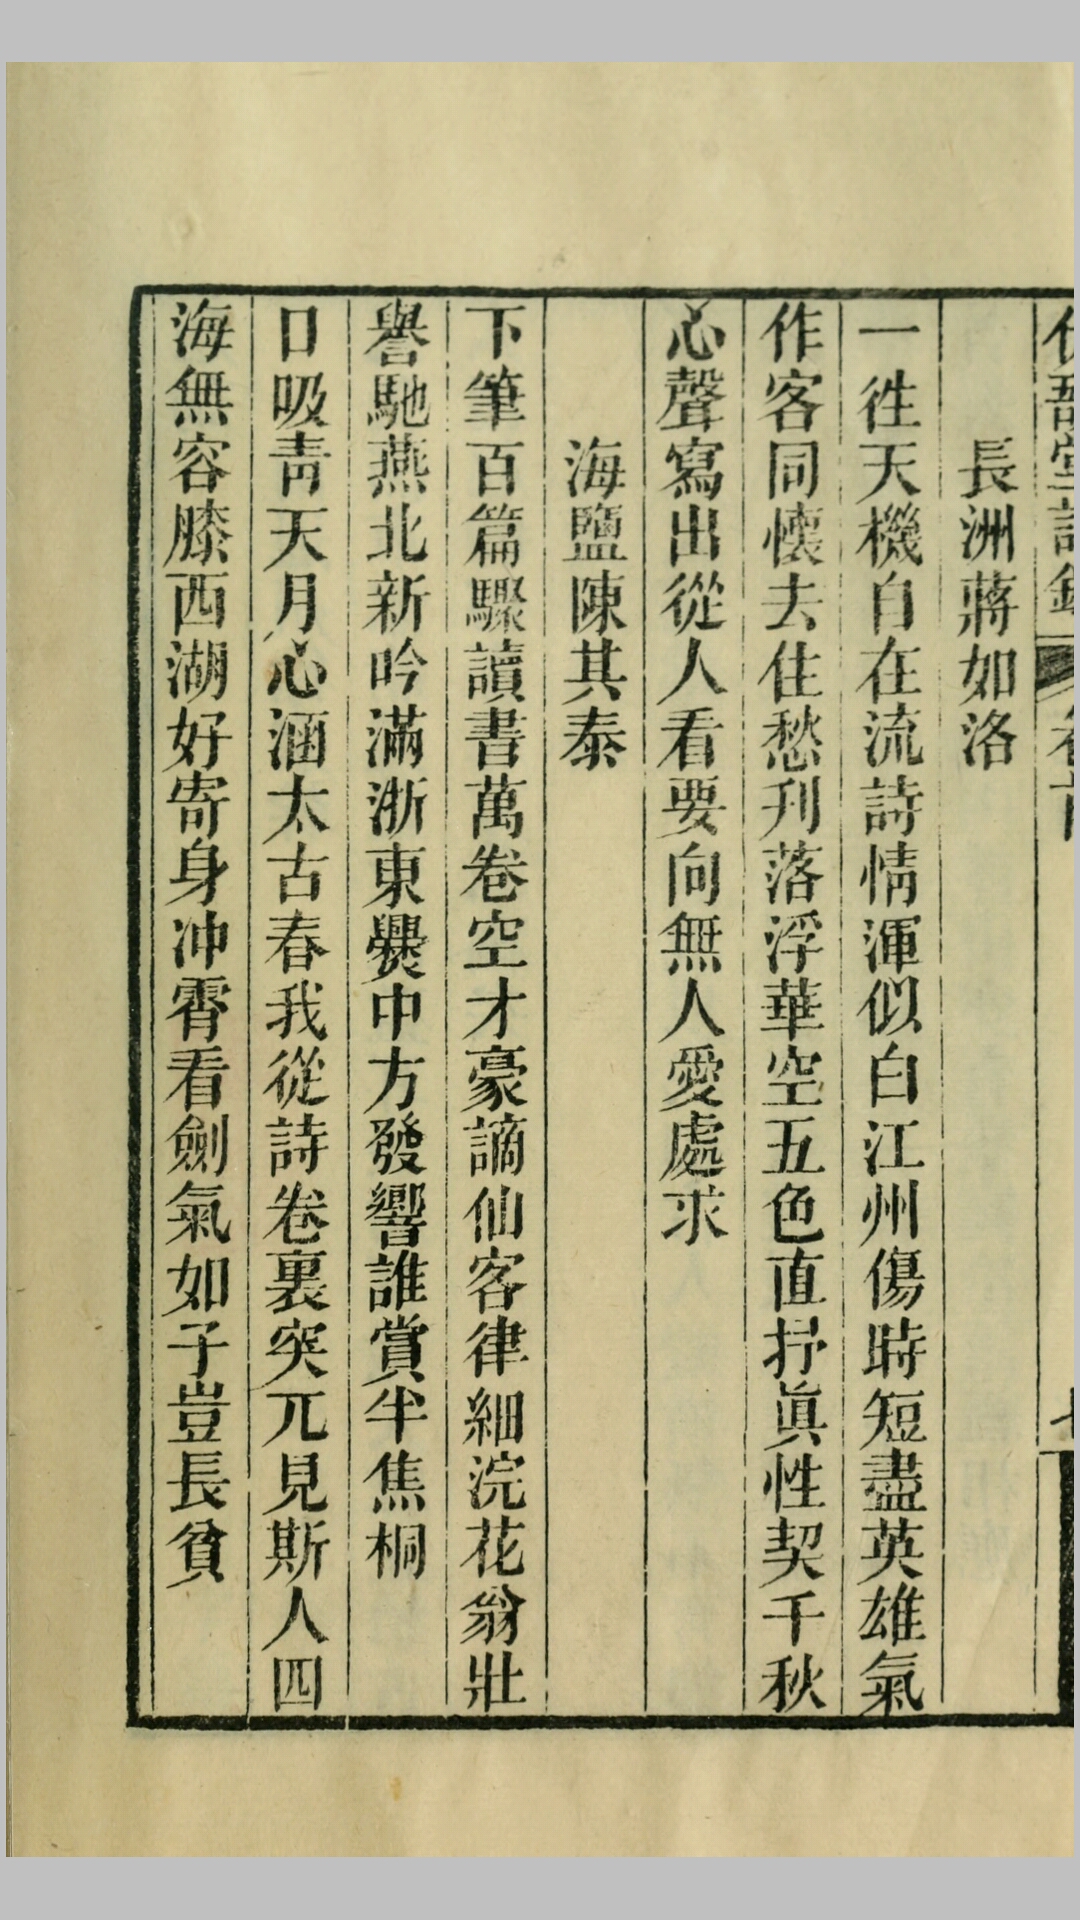 長洲蔣如洛
一徃天機自在流詩情渾似白江州傷時短盡英雄氣
作客同懷去住愁刋落浮華空五色直抒眞性契千秋
心聲寫出從人看要向無人愛處求
海鹽陳其泰
下筆百篇驟讀書萬卷空才豪謫仙客律細浣花翁壯
譽馳燕北新吟滿浙東爨中方發響誰賞半焦桐
口吸靑天月心涵太古春我從詩卷裏突兀見斯人四
海無容膝西湖好寄身冲霄看劍氣如子豈長貧